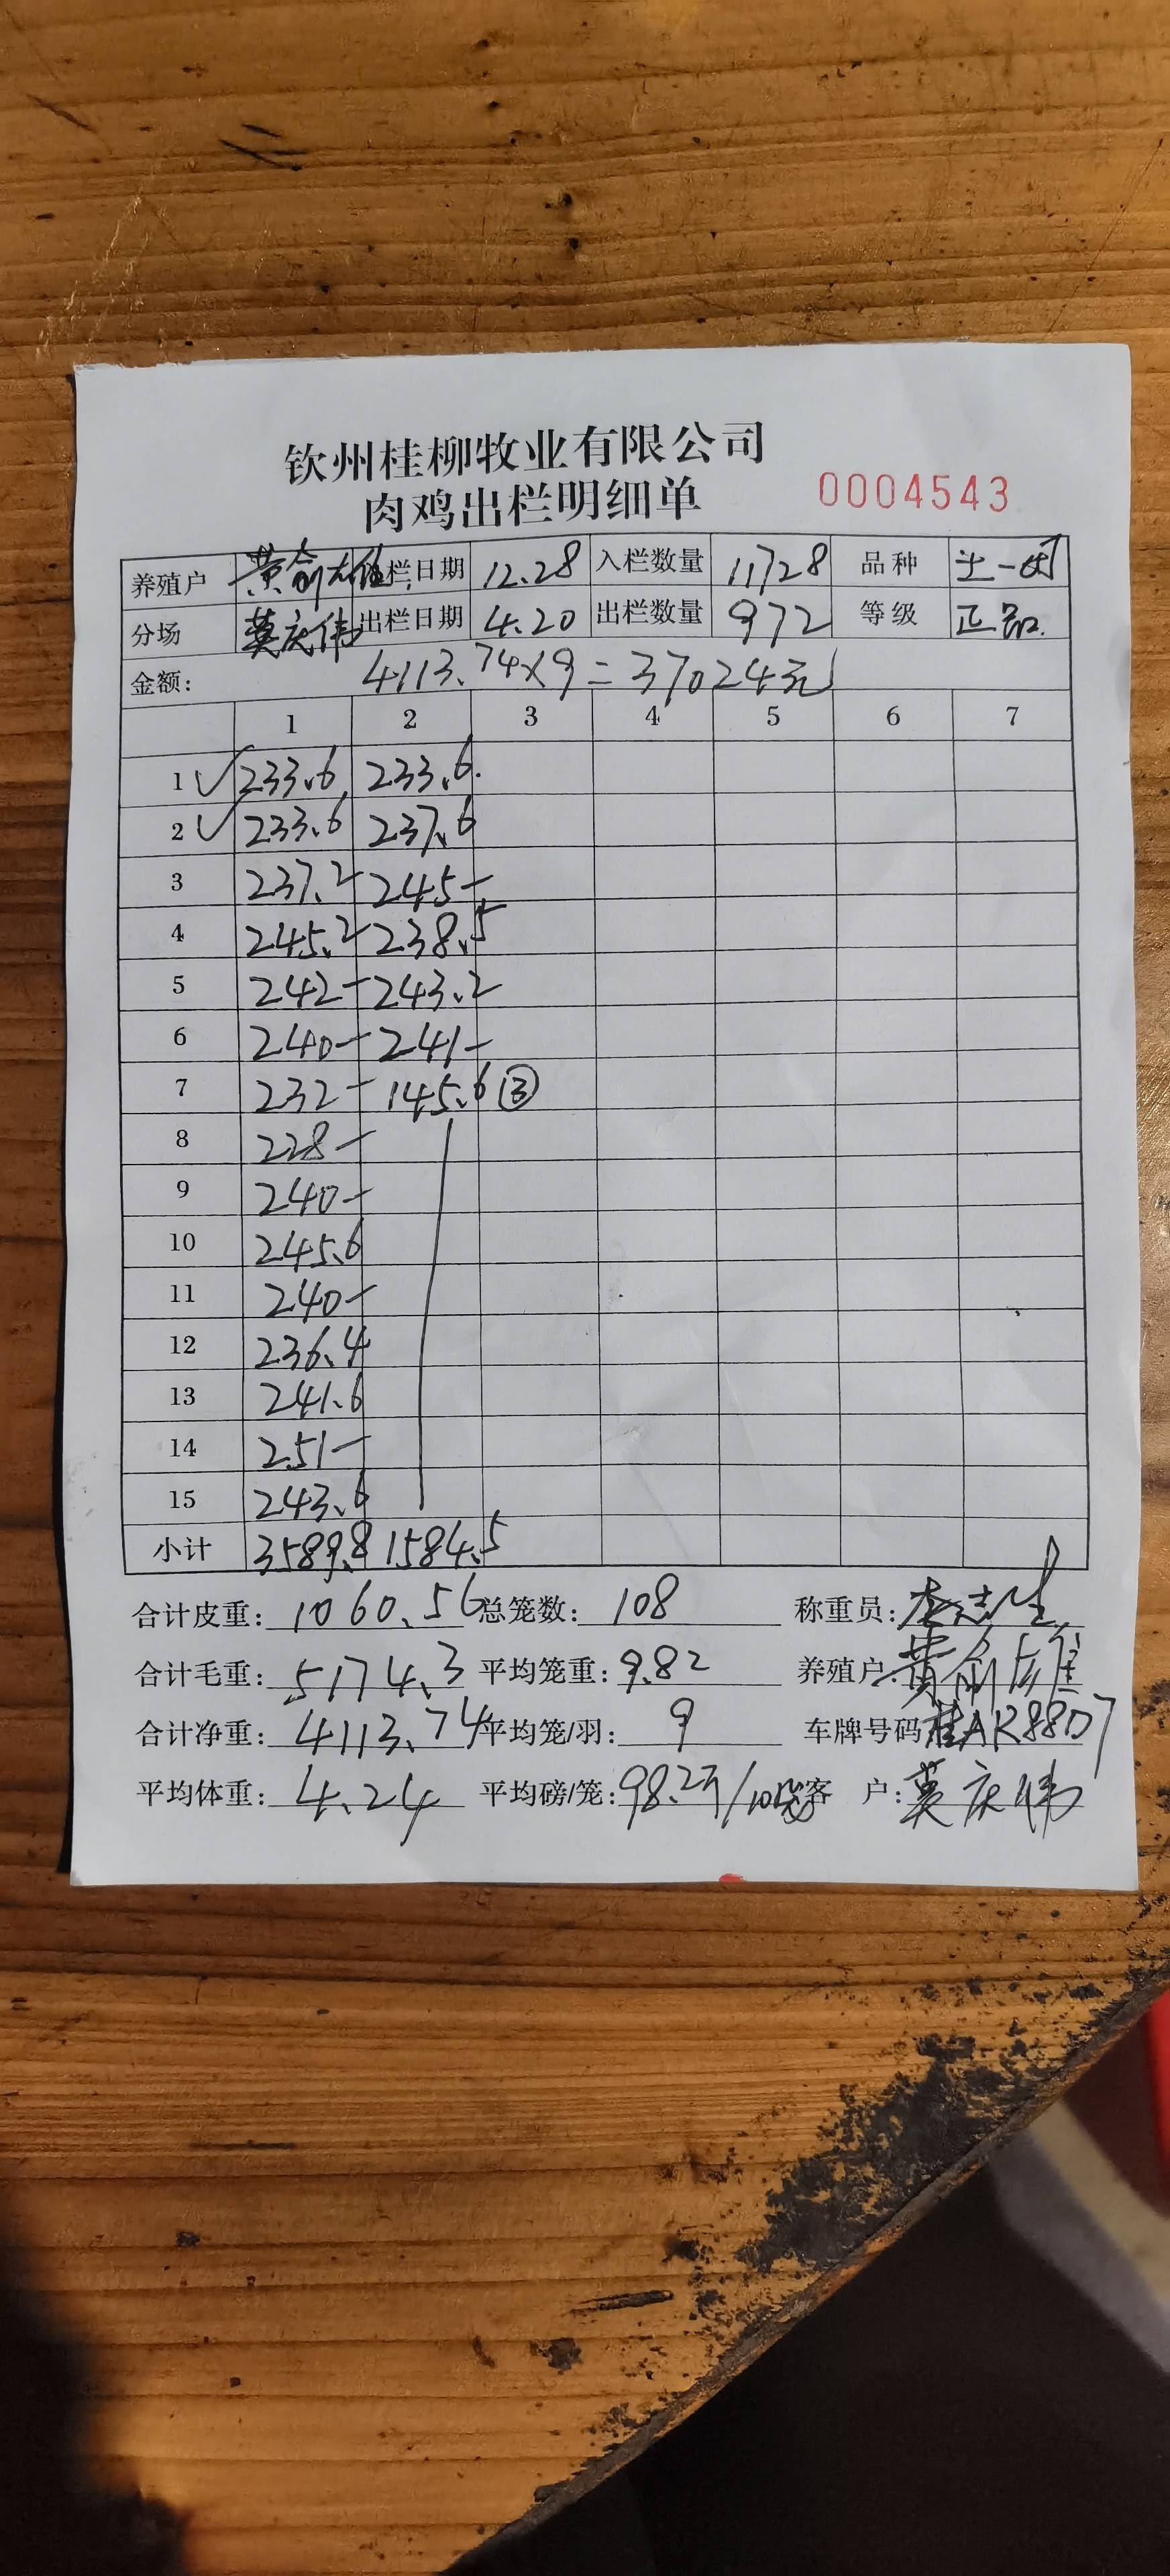 钦州桂柳牧业有限公司
肉鸡出栏明细单 0004543
养殖户 黄俞雄 栏日期 12.28 入栏数量 11728 品种 土一
分场 莫庆伟 出栏日期 4.20 出栏数量 972 等级 正品.
金额: 4113.74×9=37024元
1 2 3 4 5 6 7
1 233.6 233.6.
2 233.6 237.6
3 237.2 245-
4 245.2 238.5
5 242- 243.2
6 240- 241-
7 232- 145.6 ③
8 228-
9 240-
10 245.6
11 240-
12 236.4
13 241.6
14 251-
15 243.6
小计 3589.8 1584.5
合计皮重: 1060.56 总笼数: 108 称重员: 志生
合计毛重: 5174.3 平均笼重: 9.82 养殖户: 黄俞雄
合计净重: 4113.74 平均笼/羽: 9 车牌号码 桂AR88D7
平均体重: 4.24 平均磅/笼: 98.2斤/10笼 客 户: 莫庆伟